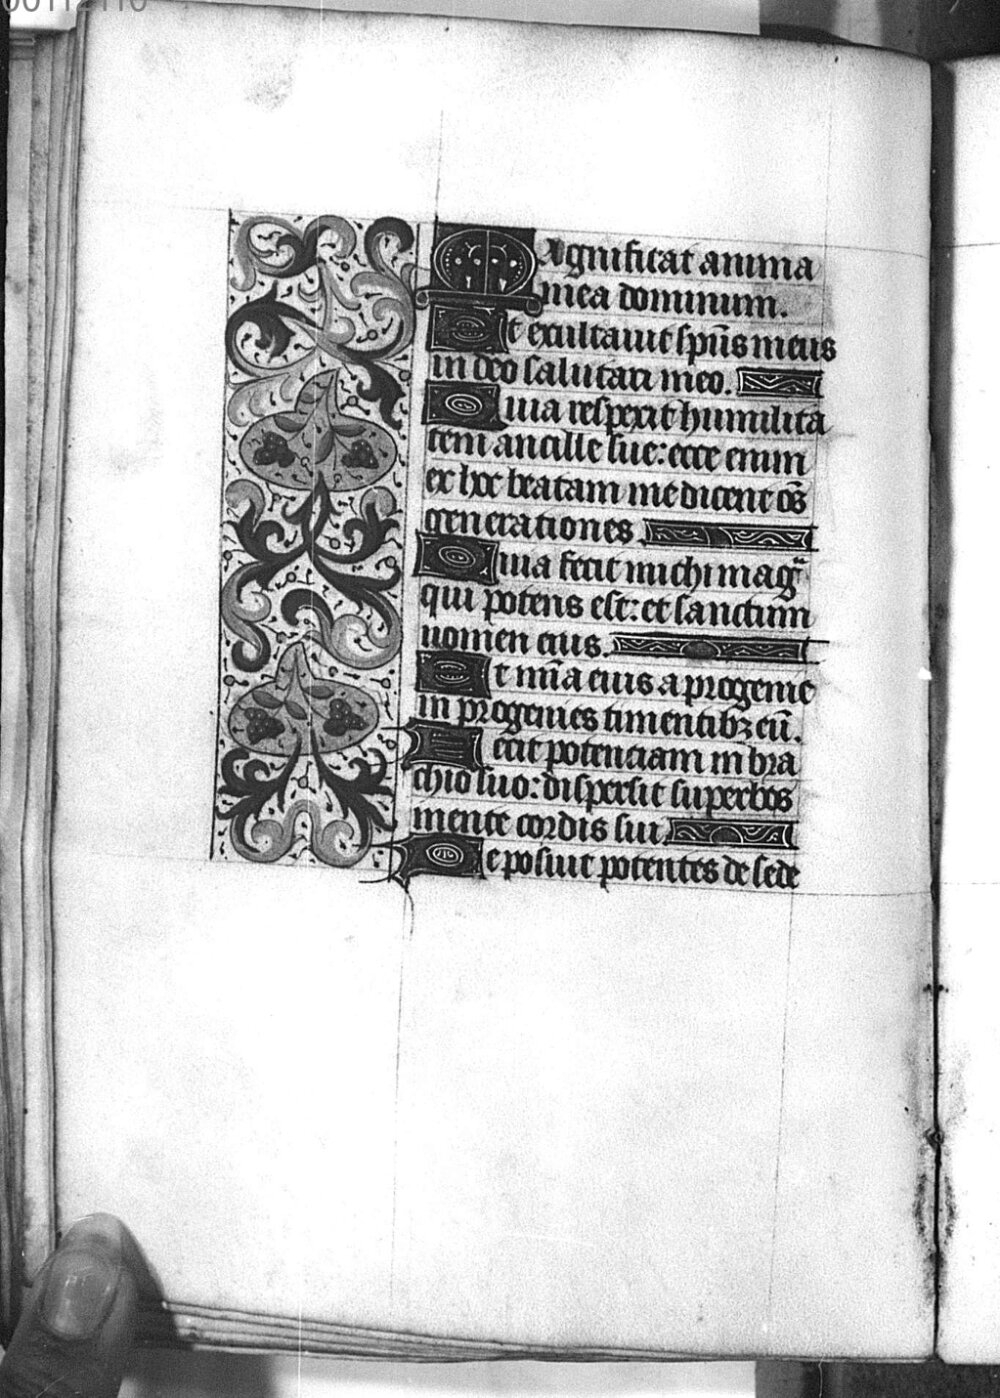 00112110
Magnificat anima
mea dominum.
Et exultavit spūs meus
in deo salutari meo.
Quia respexit humilita
tem ancille sue: ecce enim
ex hoc beatam me dicent oēs
generationes.
Quia fecit michi magͣ
qui potens est: et sanctum
nomen eius.
Et mīa eius a progenie
in progenies timentibꝫ eū.
Fecit potenciam in bra
chio suo: dispersit superbos
mente cordis sui
Deposuit potentes de sede